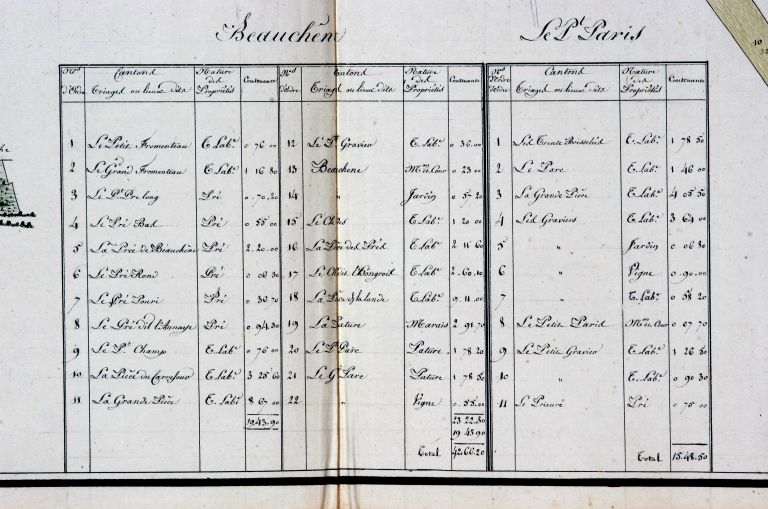 Beauchêne
Le Pt Paris
Nos d'Ordre | Cantons Triages ou lieux dits | Nature des Propriétés | Contenance | Nos d'Ordre | Cantons Triages ou lieux dits | Nature des Propriétés | Contenance | Nos d'Ordre | Cantons Triages ou lieux dits | Nature des Propriétés | Contenance
1 Le Petit Fromenteau T. Labe 0 76 00 | 12 Le Pt Gravier T. labe 0 36 00 | 1 T. Labe 1 78 50
2 Le Grand Fromenteau T. Labe 1 16 80 | 13 Beauchene Mon et Cour 0 23 00 | 2 Le Parc T. Labe 1 46 00
3 Le Pt Pre long Pré 0 70 20 | 14 " Jardin 0 57 20 | 3 La Grande Pièce T. Labe 4 05 50
4 Le Pré Bas Pré 0 55 00 | 15 T. Labe 1 20 00 | 4 Les Graviers T. Labe 3 64 00
5 La Prée de Beauchêne Pré 2 20 00 | 16 La Pièce des Prés T. Labe 2 11 60 | 5 " Jardin 0 06 80
6 Le Pré Rond Pré 0 06 30 | 17 T. Labe 2 60 10 | 6 " Vigne 0 90 00
7 Le Pré Pouri Pré 0 36 70 | 18 T. Labe 9 11 00 | 7 " T. Labe 0 58 20
8 Le Pré de l'Aunaye Pré 0 94 30 | 19 La Pature Marais 2 91 70 | 8 Le Petit Paris Mon et Cour 0 67 70
9 Le Pt Champ T. Labe 0 76 00 | 20 Le Pt Parc Pature 1 78 20 | 9 Le Petit Gravier T. Labe 1 26 50
10 La Pièce du Carrefour T. Labe 3 25 60 | 21 Le Gd Parc Pature 1 78 50 | 10 " T. Labe 0 90 30
11 La Grande Pièce T. Labe 8 67 00 | 22 " Vigne 0 55 00 | 11 Le Prieuré Pré 0 75 00
19.43.90 | 23 22 30
19 43 90
Total 42.66.20 | Total 15.48.50
10